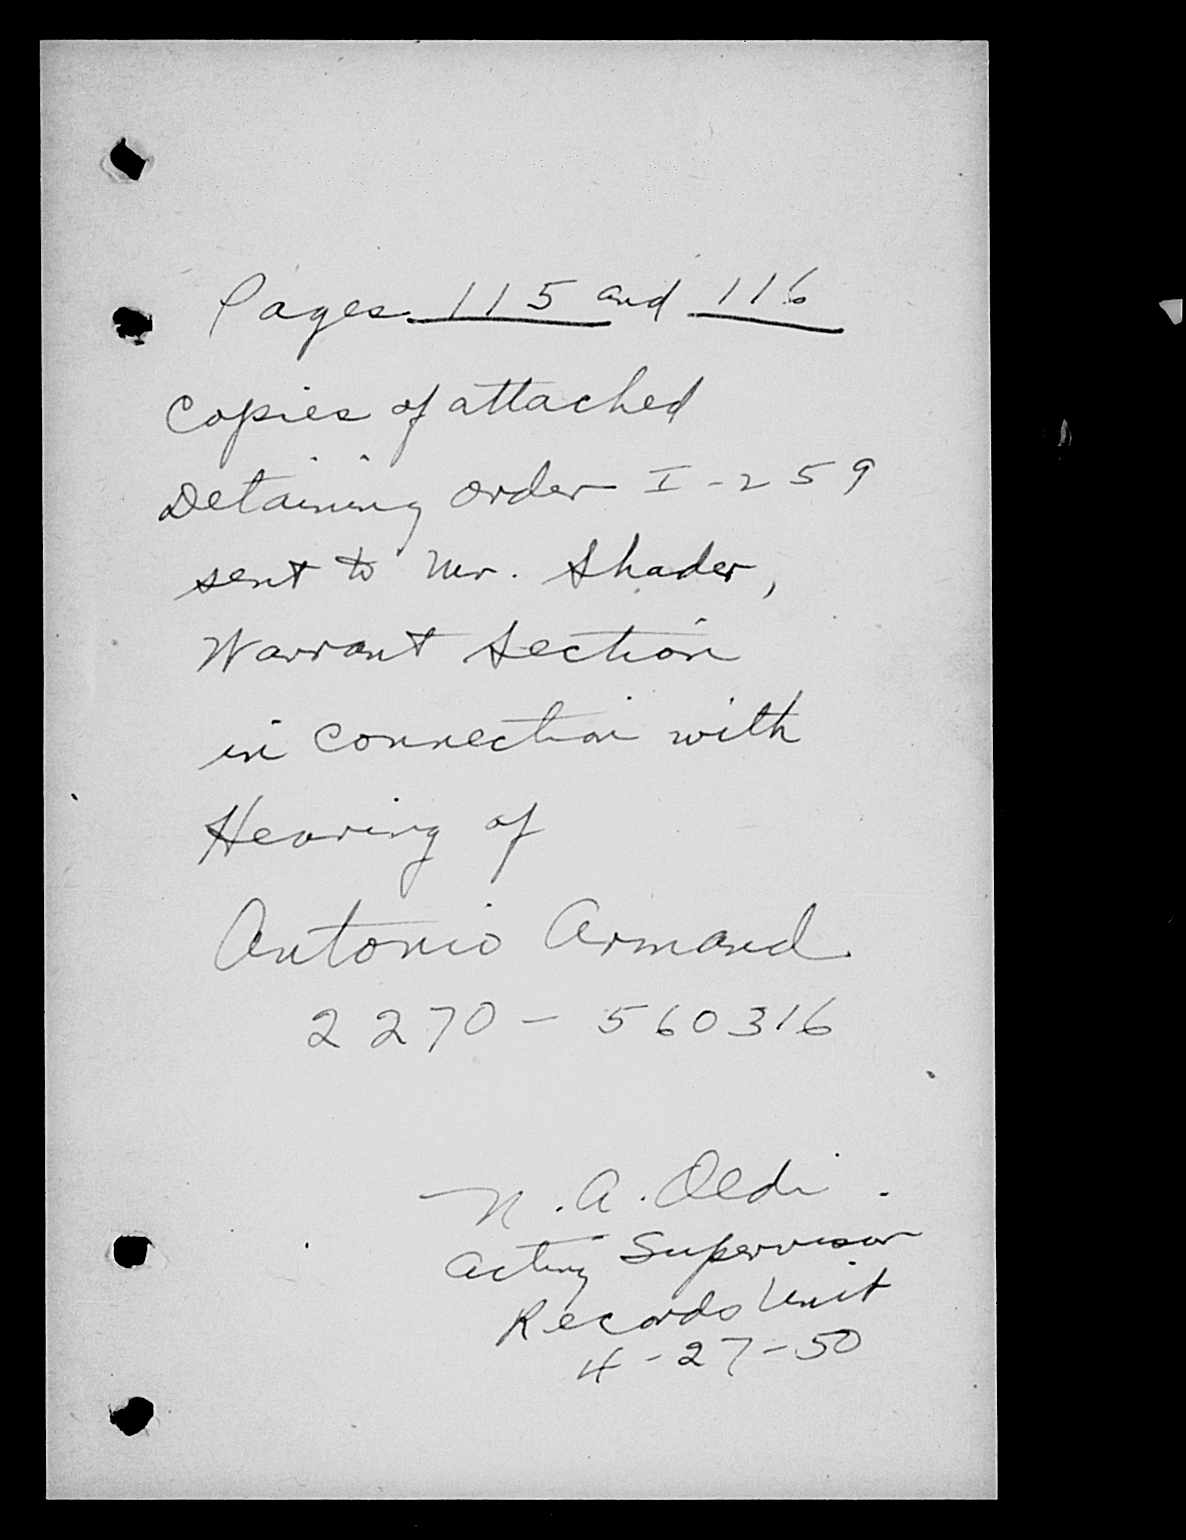 Pages 115 and 116
Copies of attached
Detaining order I-259
sent to Mr. Shader,
Warrant Section
in connection with
Hearing of
Antonio Armand
2270 - 560316
N. A. Oldi.
Acting Supervisor
Records Unit
4-27-50